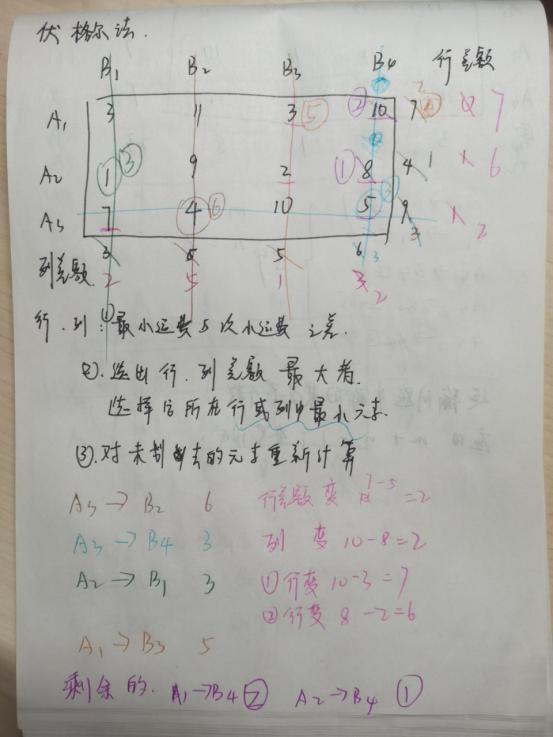 伏格尔法.
B1 B2 B3 B4 行差数
A1 3 11 3 ⑤ ② 10 7 0 7
A2 ① ③ 9 2 ① 8 4 1 1 6
A3 7 4 ⑥ 10 5 ③ 9 3 1 2
3 5 5 6 3
列差数 2 5 1 3 2
行.列:①最小运费与次小运费之差.
②.选出行.列差数最大者.
选择它所在行或列中最小元素.
③.对未划去的元素重新计算
A3→B2 6 行差数变 7-5=2
A3→B4 3 列变 10-8=2
A2→B1 3 ①行变 10-3=7
②行变 8-2=6
A1→B3 5
剩余的. A1→B4 ② A2→B4 ①